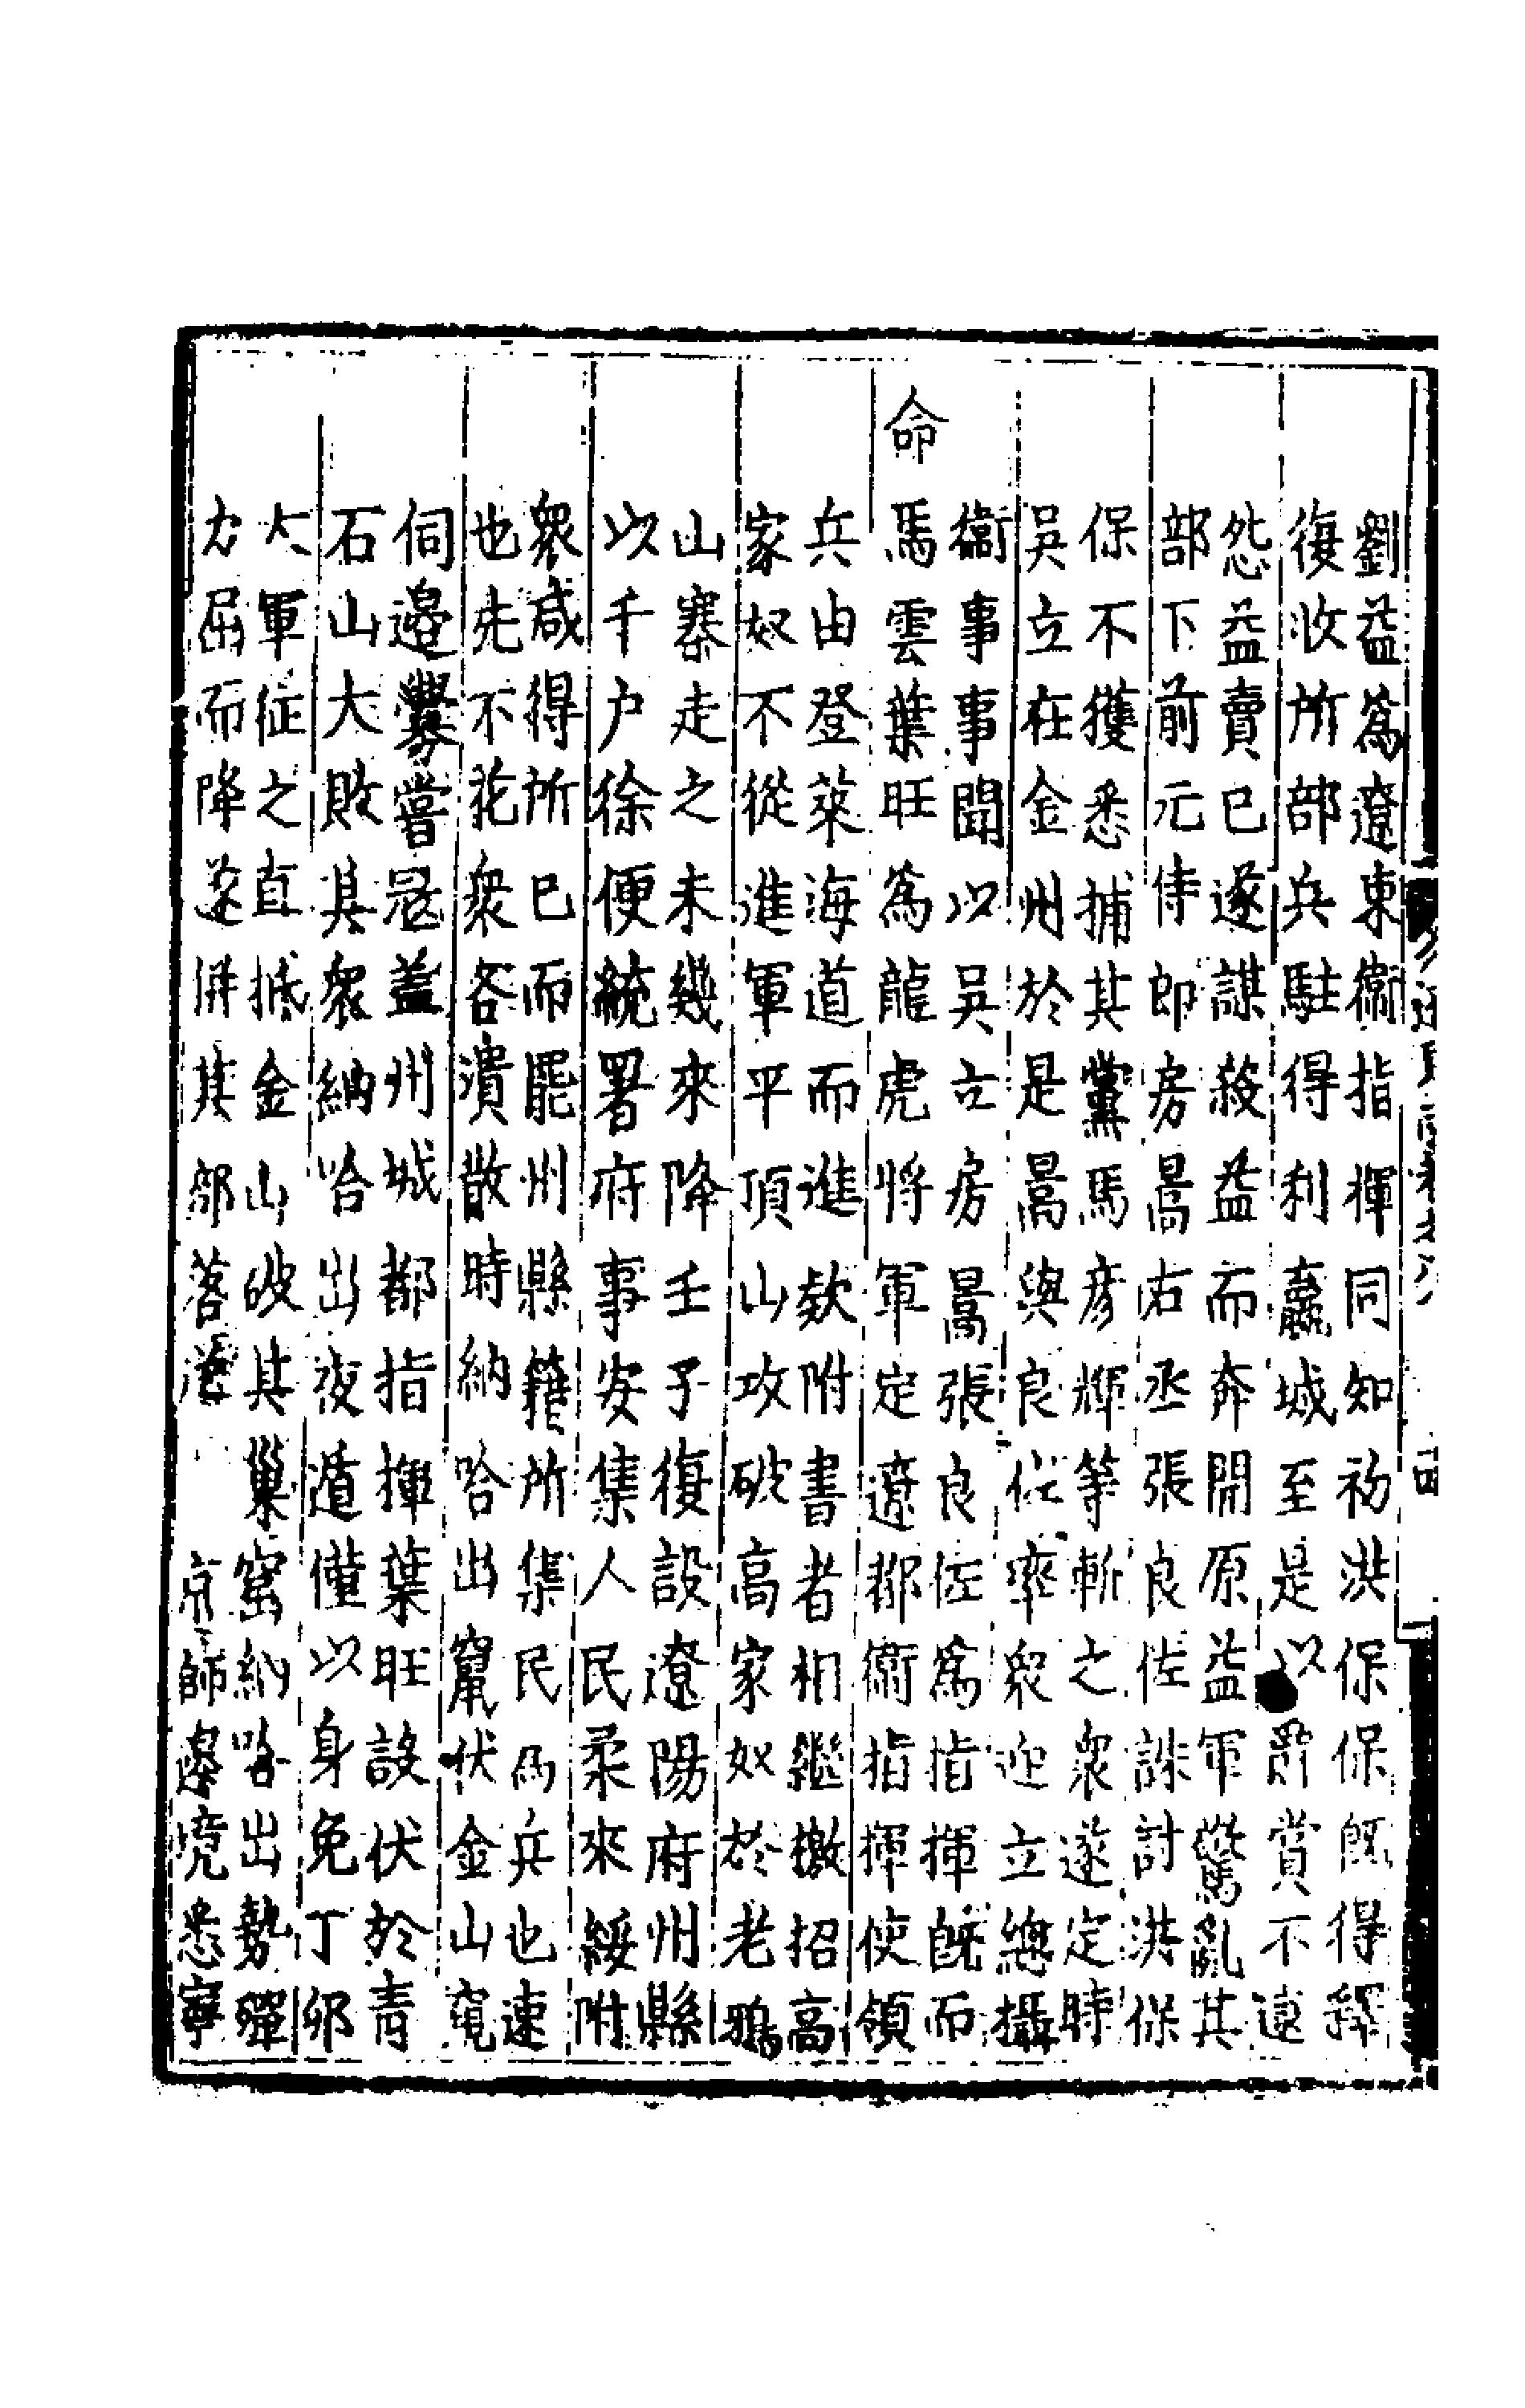 劉益爲遼東衞指揮同知初洪保保旣得釋
復收所部兵駐得利嬴城至是以爵賞不逮
怨益賣已遂謀殺益而奔開原益軍驚亂其
部下前元侍郎房暠右丞張良佐誅討洪保
保不獲悉捕其黨馬彦輝等斬之衆遂定時
吳立在金州於是暠與良佐率衆迎立總攝
衞事事聞以吳立房暠張良佐爲指揮旣而
命馬雲葉旺爲龍虎將軍定遼都衞指揮使領
兵由登萊海道而進欵附書者相繼檄招高
家奴不從進軍平頂山攻破高家奴於老鴉
山寨走之未幾來降壬子復設遼陽府州縣
以千户徐便統署府事安集人民柔來綏附
衆咸得所已而罷州縣籍所集民爲兵也速
也先不花衆各潰散時納哈出竄伏金山窺
伺邉釁嘗冦盖州城都指揮葉旺設伏於青
石山大敗其衆納哈出夜遁僅以身免丁卯
大軍征之直抵金山破其巢窟納哈出勢殫
力屈而降遂併其部落送京師邊境悉寧